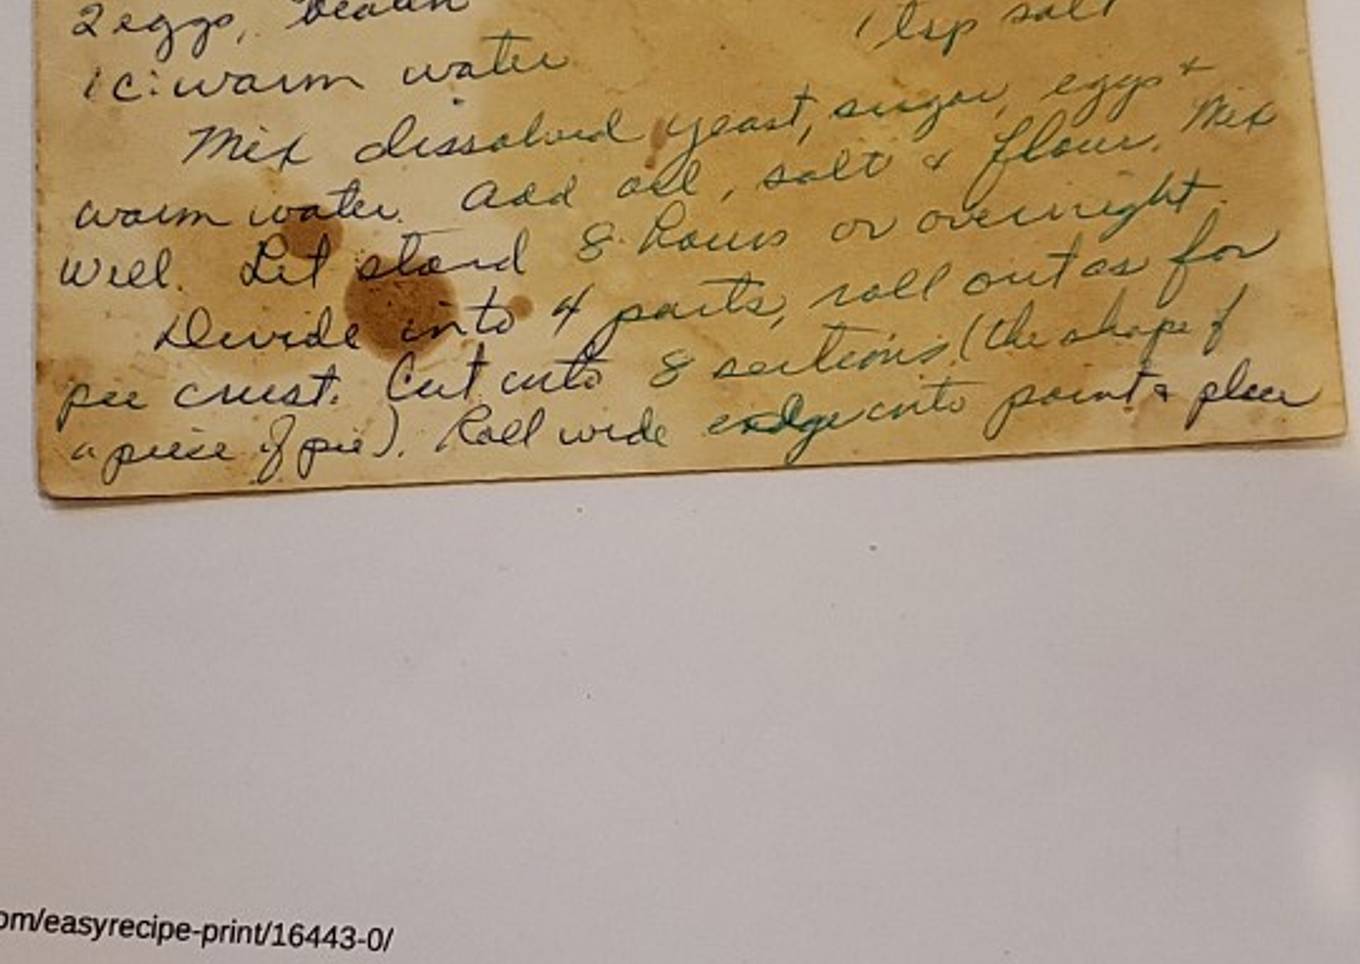 2 eggs, beaten
1 tsp salt
1 c. warm water
Mix dissolved yeast, sugar, eggs +
warm water. Add oil, salt & flour. Mix
well. Let stand 8 hours or overnight.
Divide into 4 parts, roll out as for
pie crust. Cut into 8 sections (the shape of
a piece of pie). Roll wide edge into point & place
om/easyrecipe-print/16443-0/